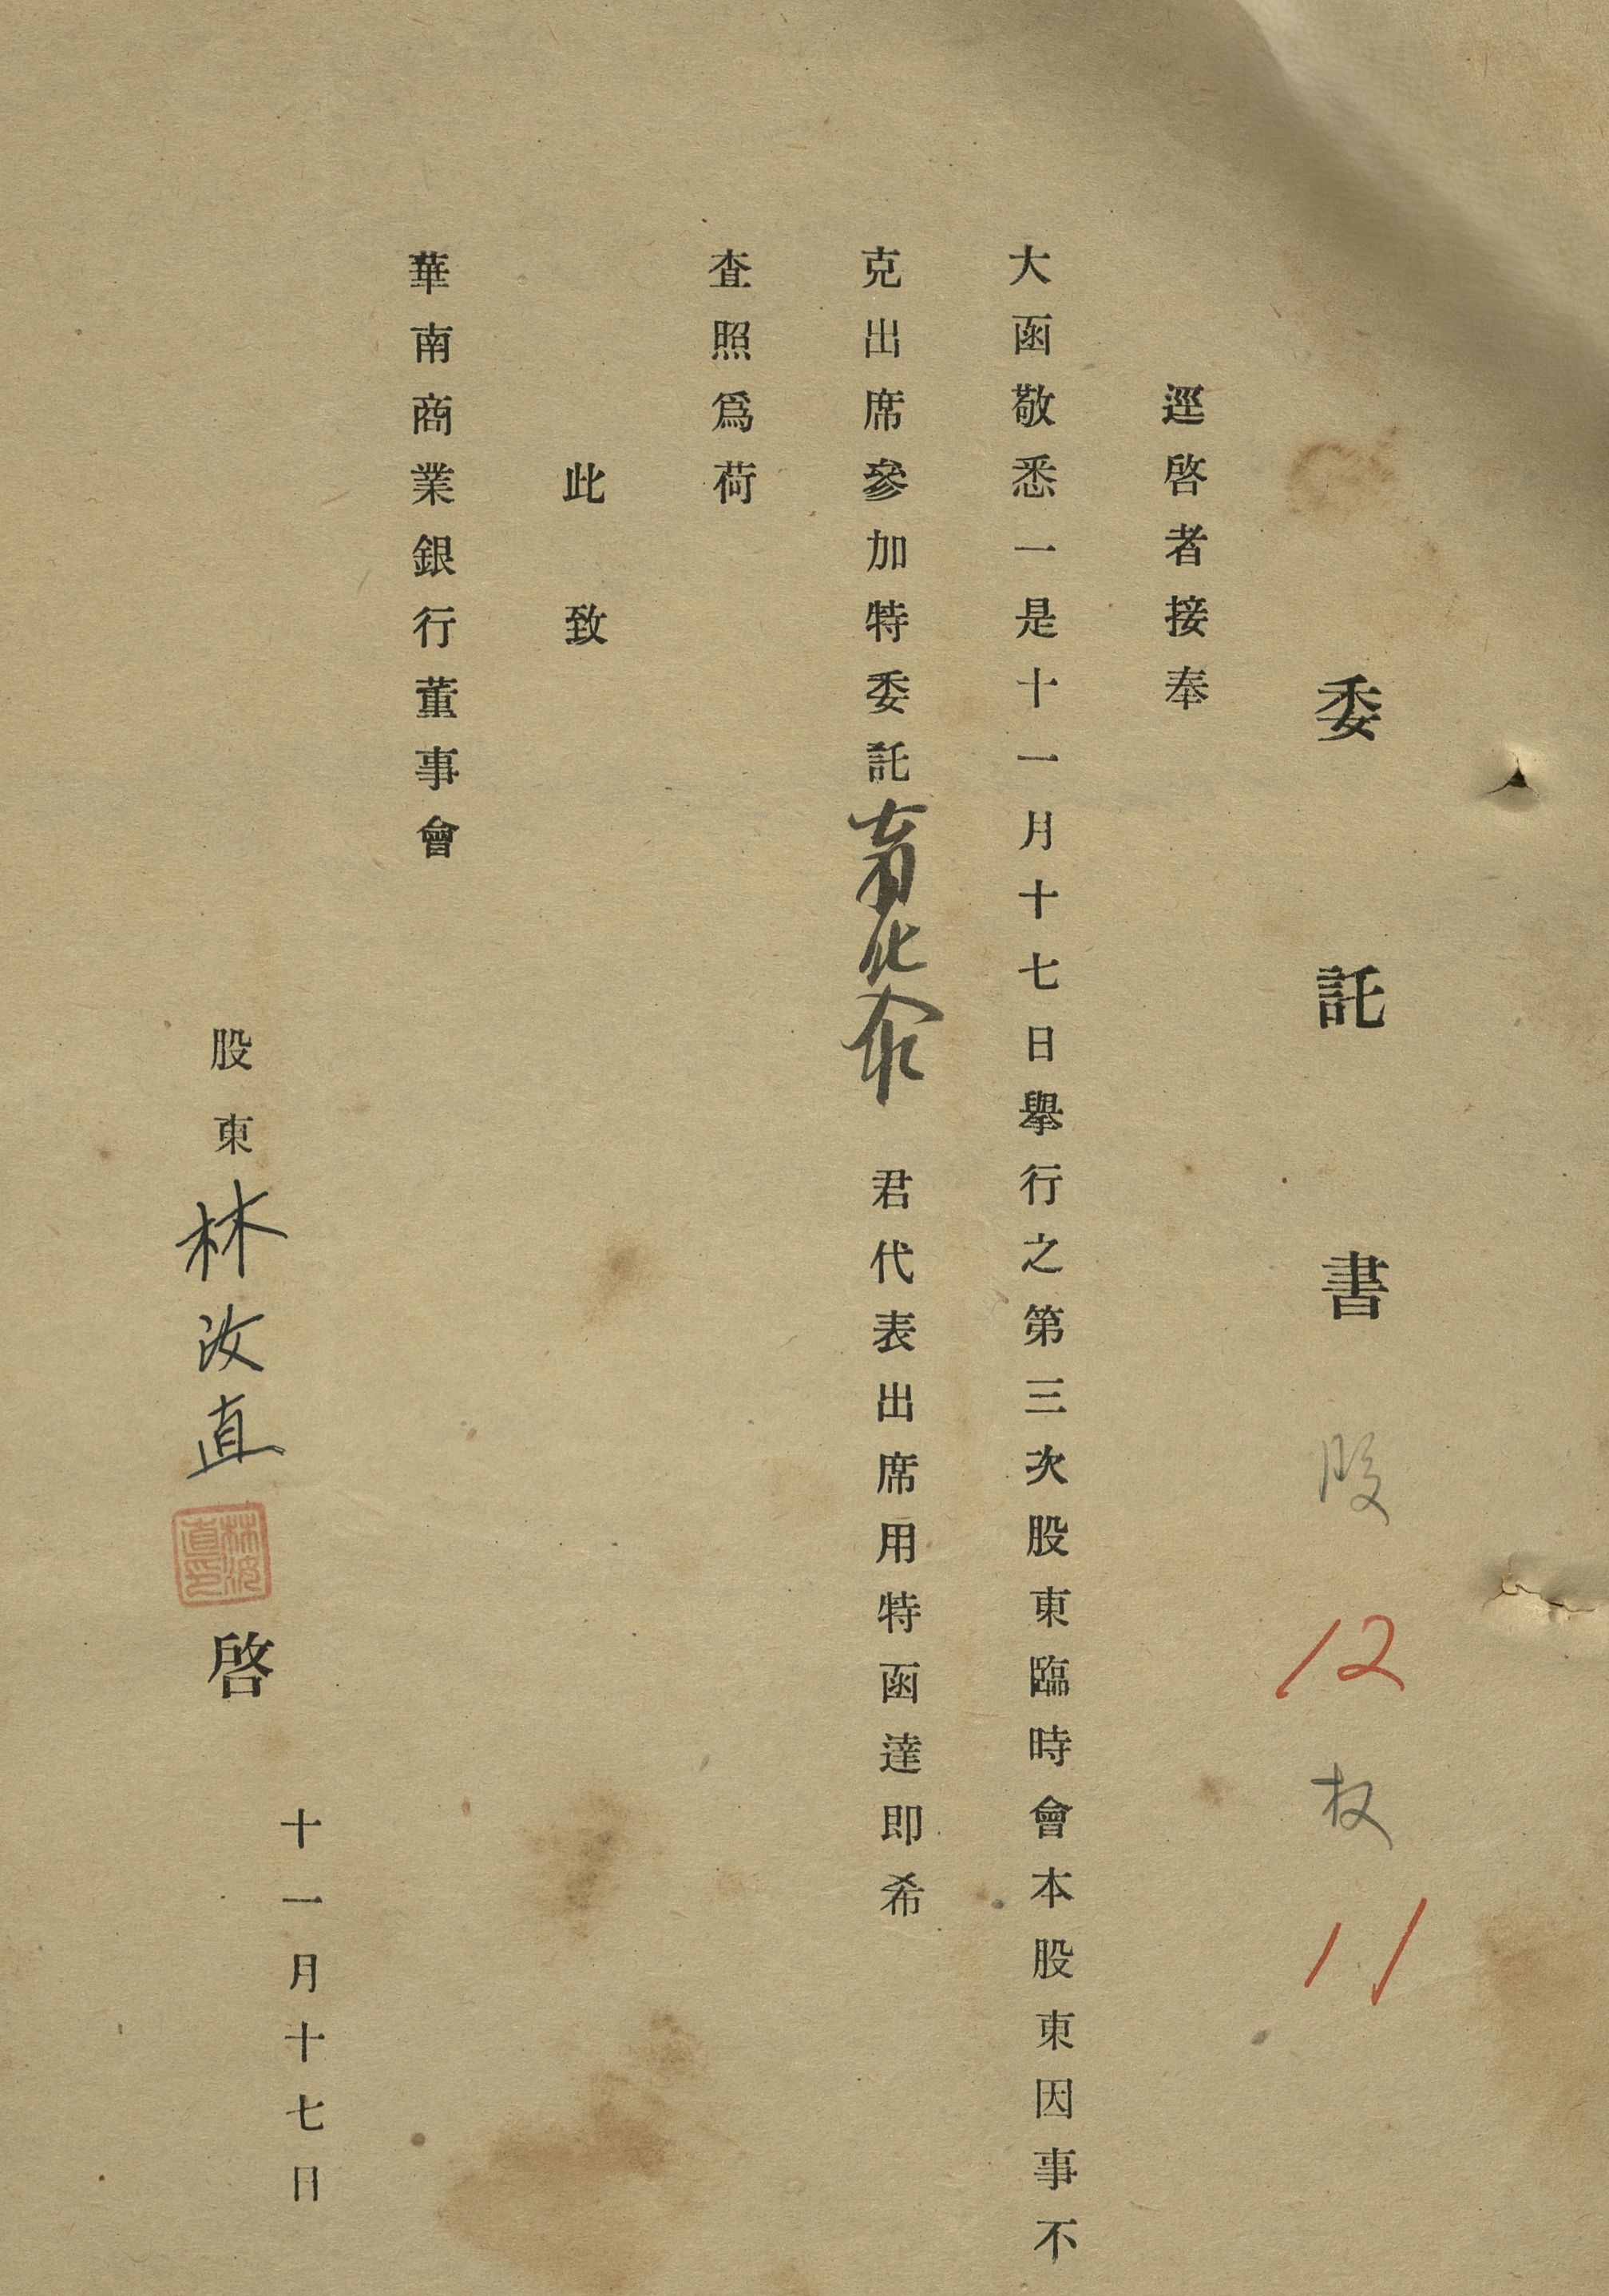 委託書 股 12 权 11
逕啓者接奉
大函敬悉一是十一月十七日舉行之第三次股東臨時會本股東因事不
克出席參加特委託 君代表出席用特函達即希
查照爲荷
此致
華南商業銀行董事會
十一月十七日
股東林汝直 啓
林汝
直印